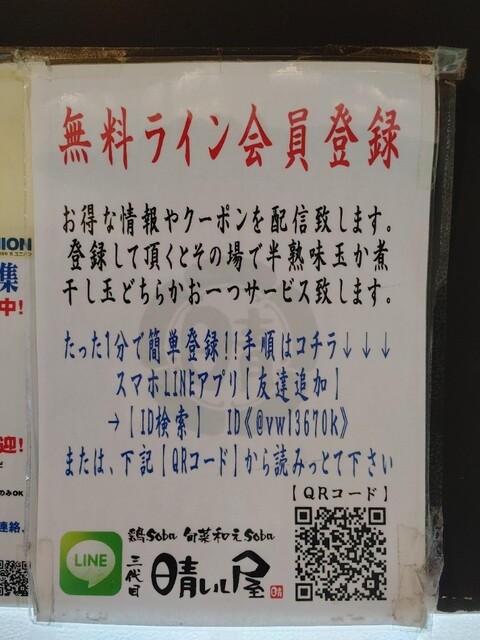 無料ライン会員登録
お得な情報やクーポンを配信致します。
登録して頂くとその場で半熟味玉か煮
干し玉どちらかお一つサービス致します。
たった1分で簡単登録!!手順はコチラ↓↓↓
スマホLINEアプリ【友達追加】
→【ID検索】 ID《@vwl3670k》
または、下記【QRコード】から読みっとて下さい
【QRコード】
LINE
鶏Soba 旬菜和えSoba
三代目
晴レル屋
晴
NION
集
中!
迎!
のみOK
連絡、